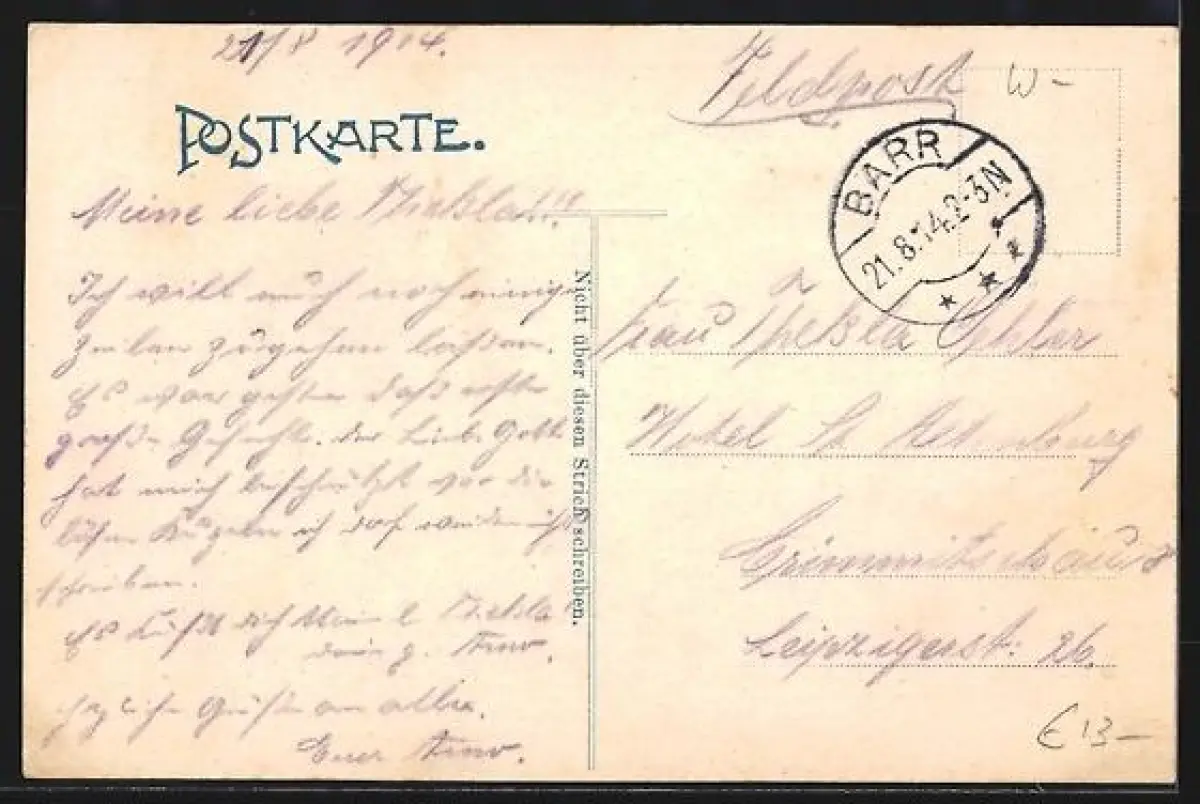 21/8 1914.
POSTKARTE.
Meine liebe Thekla!!!
Ich will euch noch einige
Zeilen zugehen laßen.
Es war gestern das
große Gefecht. der Liebe Gott
hat mich beschützt vor die
bösen Kugeln ich darf weider nicht
schreiben.
Es küßt dich Mein l. Thekla
dein g. Arno.
Grüße an alle.
Euer Arno.
Nicht über diesen Strich schreiben.
Feldpost
W-
BARR
21.8.14.2-3N
Frau Thekla
Hotel St. Petersburg
Crimmitschau
Leipzigerst: 26.
€ 13-